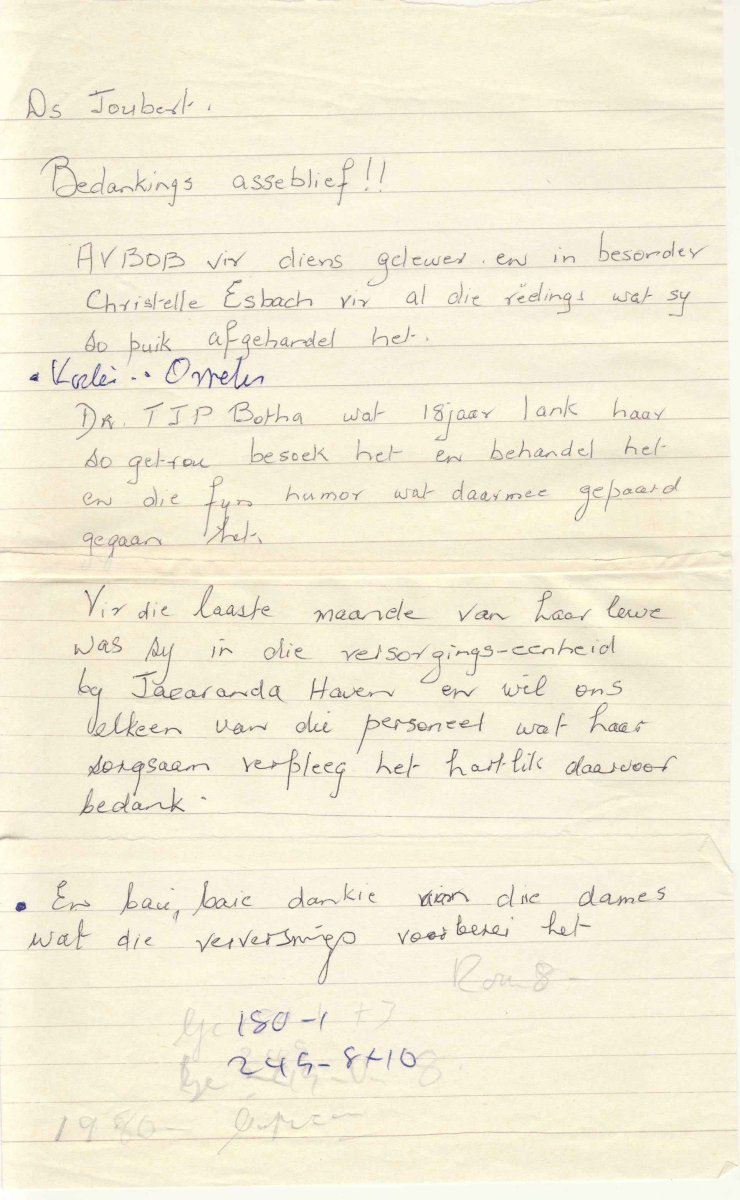 Ds Joubert.
Bedankings asseblief!!
AVBOB vir diens gelewer en in besonder
Christelle Esbach vir al die reëlings wat sy
so puik afgehandel het.
DR. TJP Botha wat 18jaar lank haar
so getrou besoek het en behandel het
en die fyn humor wat daarmee gepaard
gegaan het.
Vir die laaste maande van haar lewe
was sy in die versorgings-eenheid
by Jacaranda Haven en wil ons
elkeen van die personeel wat haar
sorgsaam verpleeg het hartlik daarvoor
bedank.
• En baie, baie dankie aan die dames
wat die verversings voorberei het
Rom 8 -
180-1 +3
249-8+10